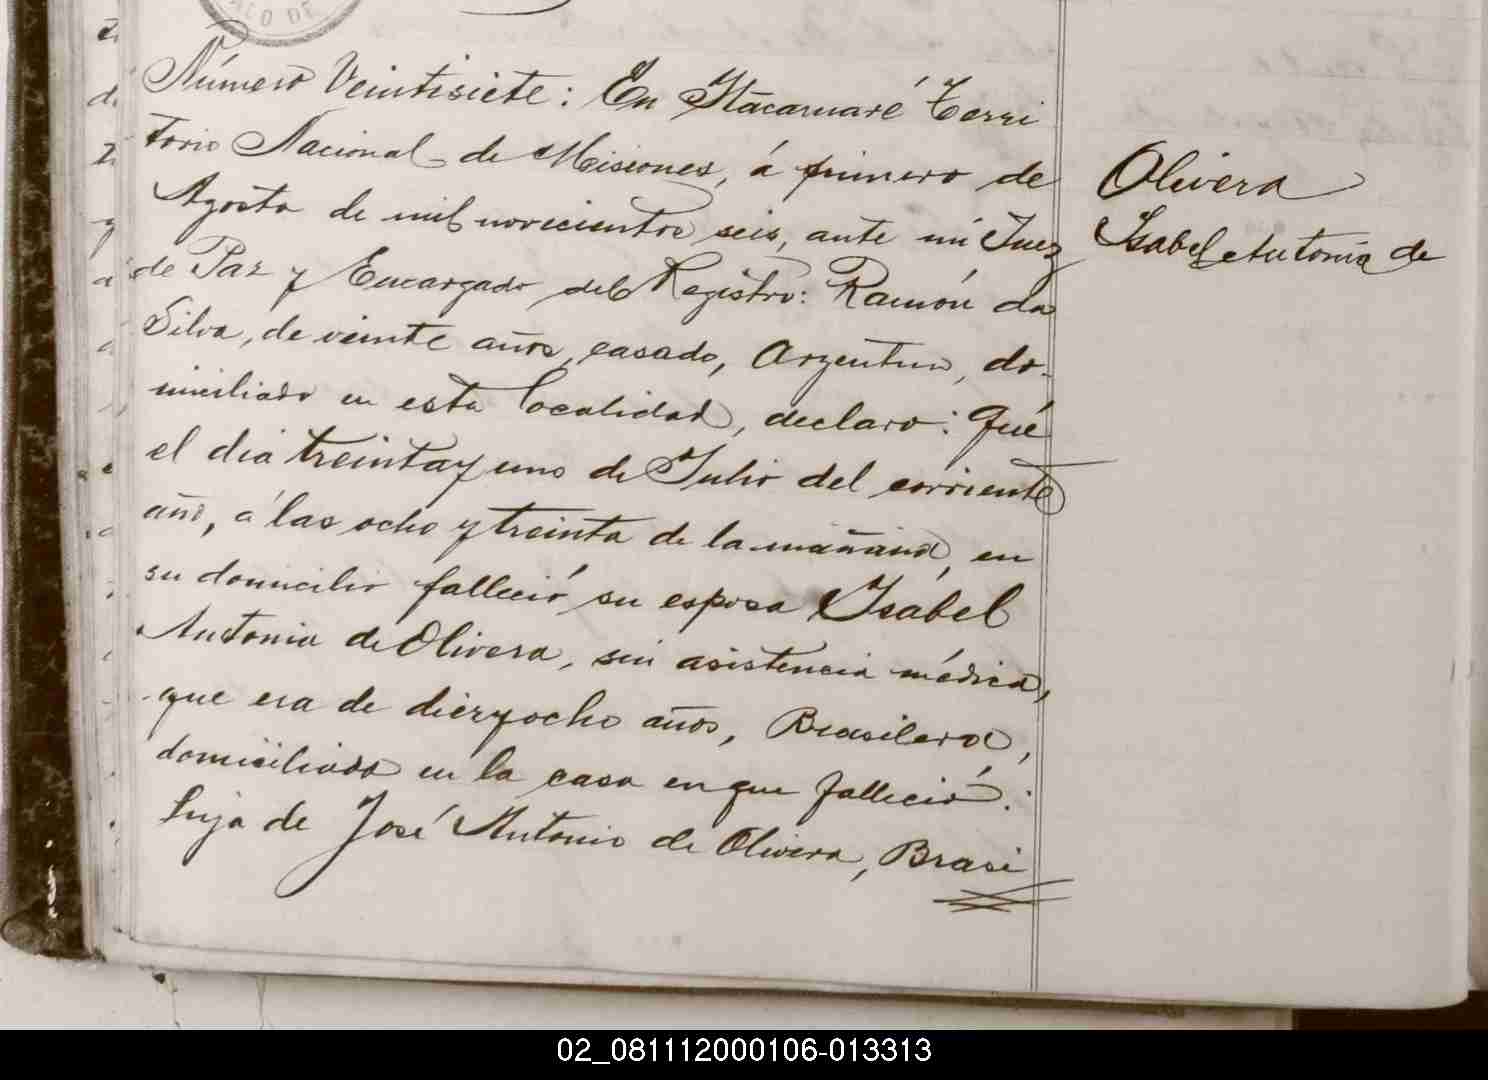 Número Veintisiete: En Itacaruaré Terri
torio Nacional de Misiones, á primero de
Agosto de mil novecientos seis, ante mi Juez
de Paz y Encargado del Registro: Ramón da
Silva, de veinte años, casado, Argentino, do-
miciliado en esta localidad, declaro: Qué
el dia treinta y uno de Julio del corriente
año, á las ocho y treinta de la mañana, en
su domicilio falleció su esposa Isabel
Antonia de Olivera, sin asistencia médica,
que era de diez y ocho años, Brasilera,
domiciliada en la casa en que falleció:
hija de José Antonio de Olivera, Brasi
Olivera
Isabel Antonia de
02_081112000106-013313